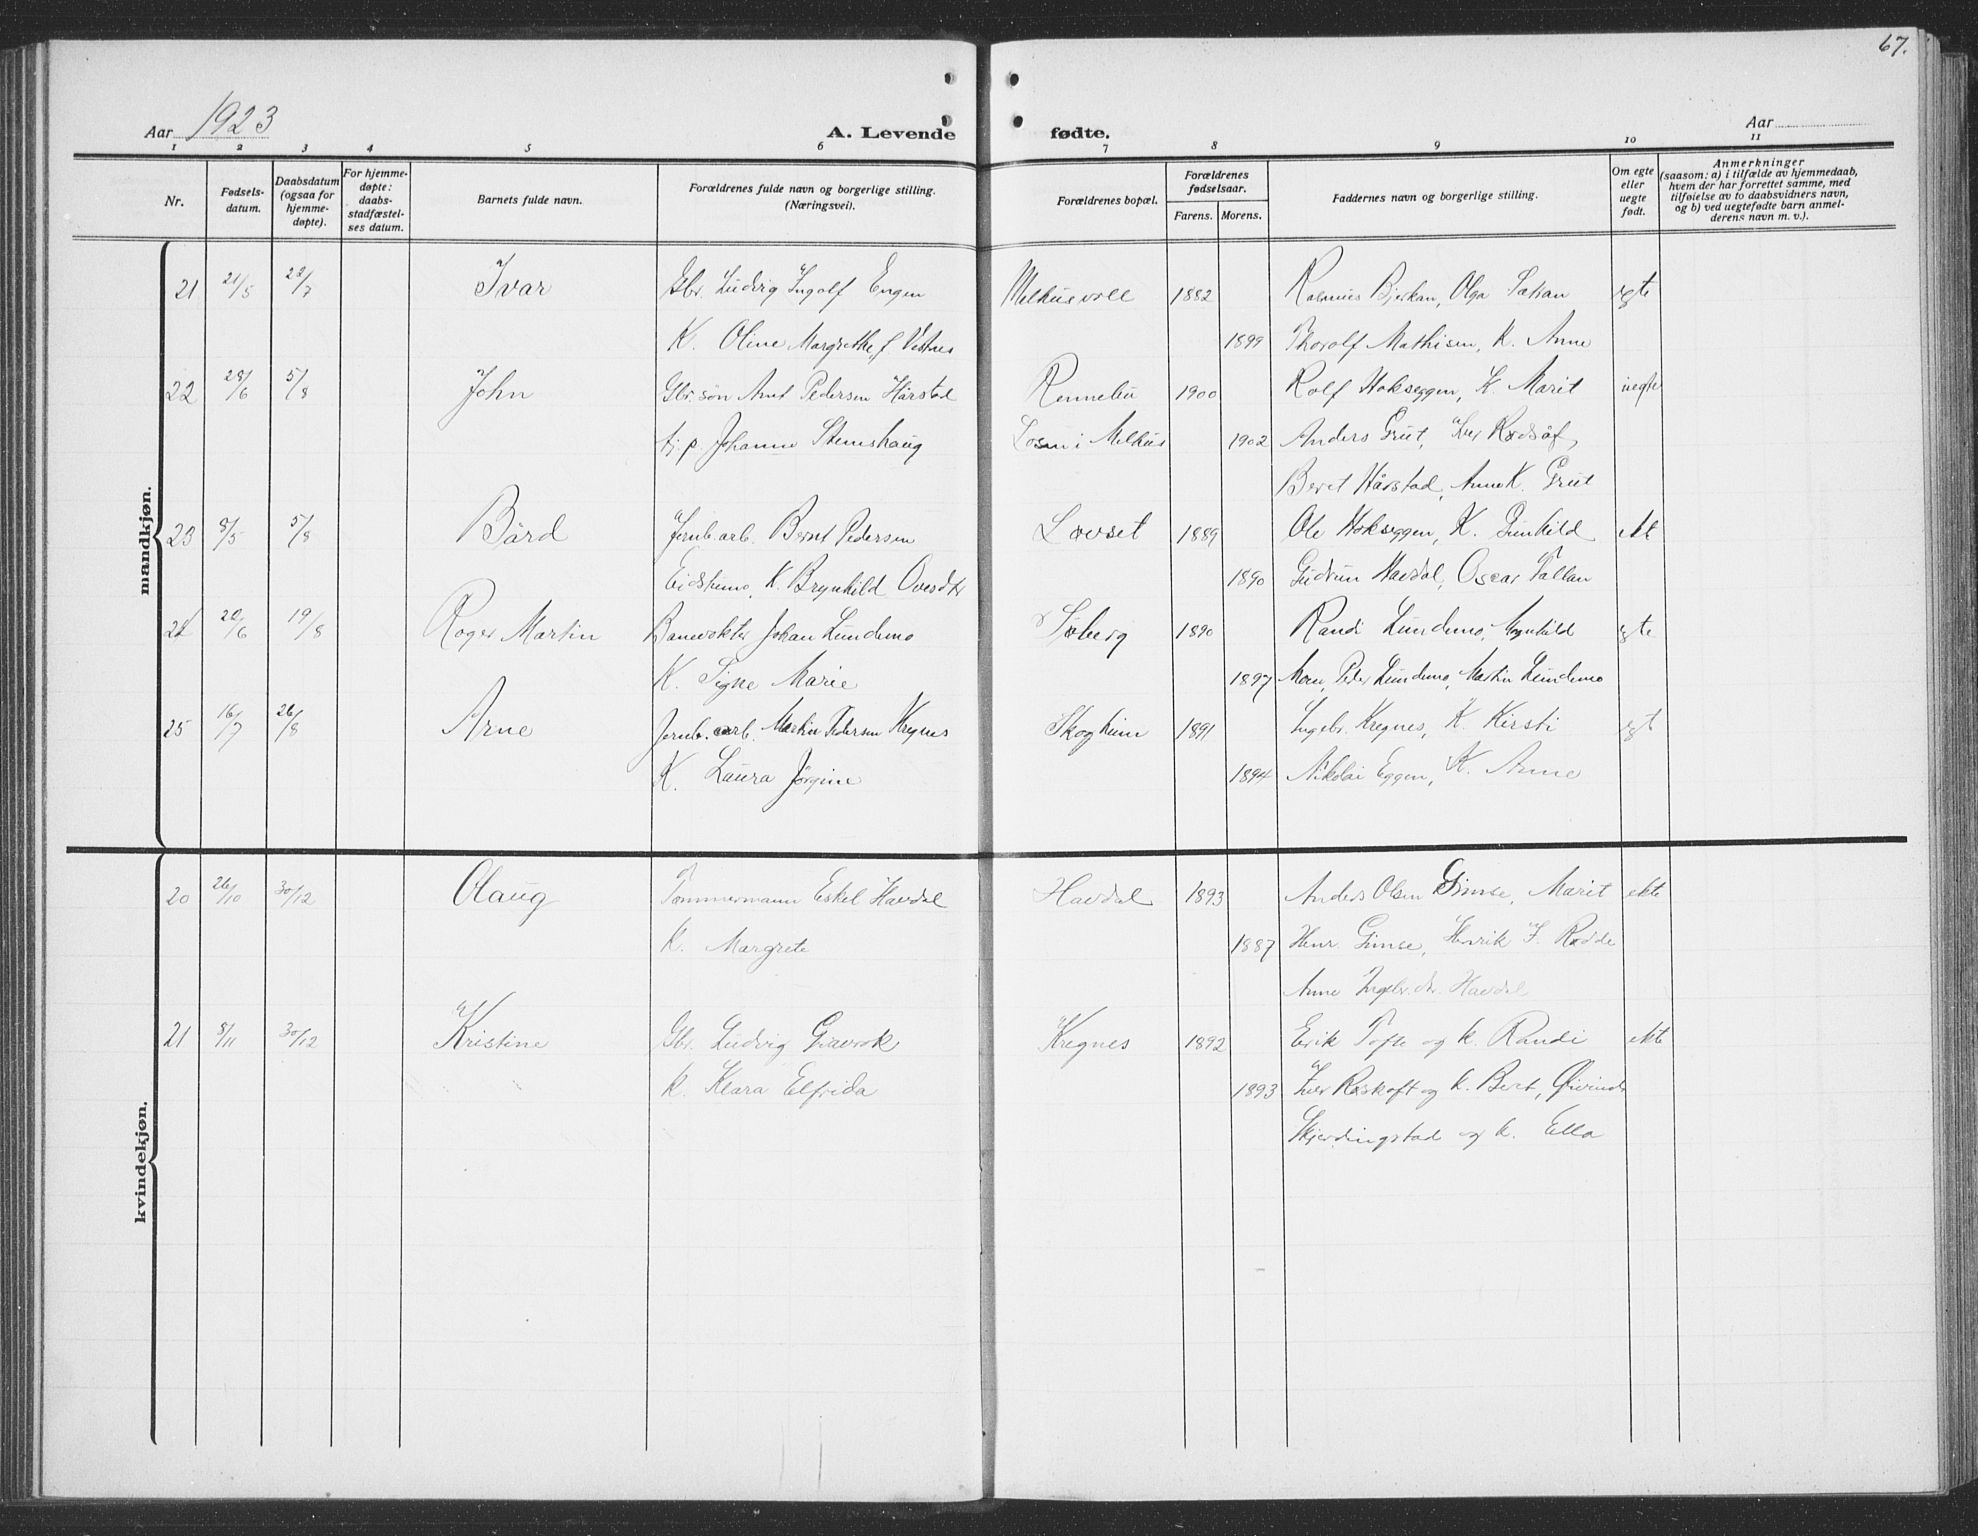 67.
Aar 1923
A. Levende fødte.
Aar
1 2 3 4 5 6 7 8 9 10 11
Nr.
Fødsels-
datum.
Daabsdatum
(ogsaa for
hjemme-
døpte).
For hjemme-
døpte:
daabs-
stadfæstel-
ses datum.
Barnets fulde navn.
Forældrenes fulde navn og borgerlige stilling.
(Næringsvei).
Forældrenes bopæl.
Forældrenes
fødselsaar.
Farens. Morens.
Faddernes navn og borgerlige stilling.
Om egte
eller
uegte
født.
Anmerkninger
(saasom: a) i tilfælde av hjemmedaab,
hvem der har forrettet samme, med
tilføielse av to daabsvidners navn,
og b) ved uegtefødte barn anmel-
derens navn m. v.).
mandkjøn.
21 21/5 22/7 Ivar Gbr. Ludvig Ingolf Engen Melhusvoll 1882 Rasmus Bjerkan, Olga egte
K. Oline Margrethe f. Vestnes 1899 Thorolf Mathisen, K. Anne
22 28/6 5/8 John Gbr. søn Arnt Pedersen Hårstad Rennebu 1900 Rolf Hokseggen, K. Marit uegte
tj. p. Johanna Stenshaug Losen i Melhus 1902 Anders Grut, Iver
Beret Hårstad, Anne K. Grut
23 8/5 5/8 Bård Jernb. arb. Bernt Pedersen Løvset 1889 Ole Hokseggen, K. Gunhild ekt
Eidsheim, K. Brynhild Ovesdtr 1890 Gudrun Havdal, Oscar Tallan
22/6 19/8 Roger Martin Banevokter Johan Lundemo Søberg 1890 Randi Lundemo, Magnhild egte
K. Signe Marie 1897 Moen, Peder Lundemo, Martin Lundemo
25 16/7 26/8 Arne Jernb. arb. Martin Pedersen Kregnes Skogheim 1891 Ingebr. Kregnes, K. Kirsti egt
K. Laura Jørgine 1894 Nikolai Eggen, K. Anne
kvindekjøn.
20 26/10 30/12 Olaug Tømmermann Eskel Havdal Havdal 1893 Anders Olsen Gimse, Marit ekte
K. Margrete 1887 Henr. Gimse, Henrik J. Rødde
Anne Ingebr. dtr. Havdal
21 8/11 30/12 Kristine Gbr. Ludvig Gravrok Kregnes 1892 Erik Tofte og k. Randi ekte
k. Klara Elfrida 1893 Iver Røskaft og k. Beret, Øivind
Skjerdingstad og k. Ella